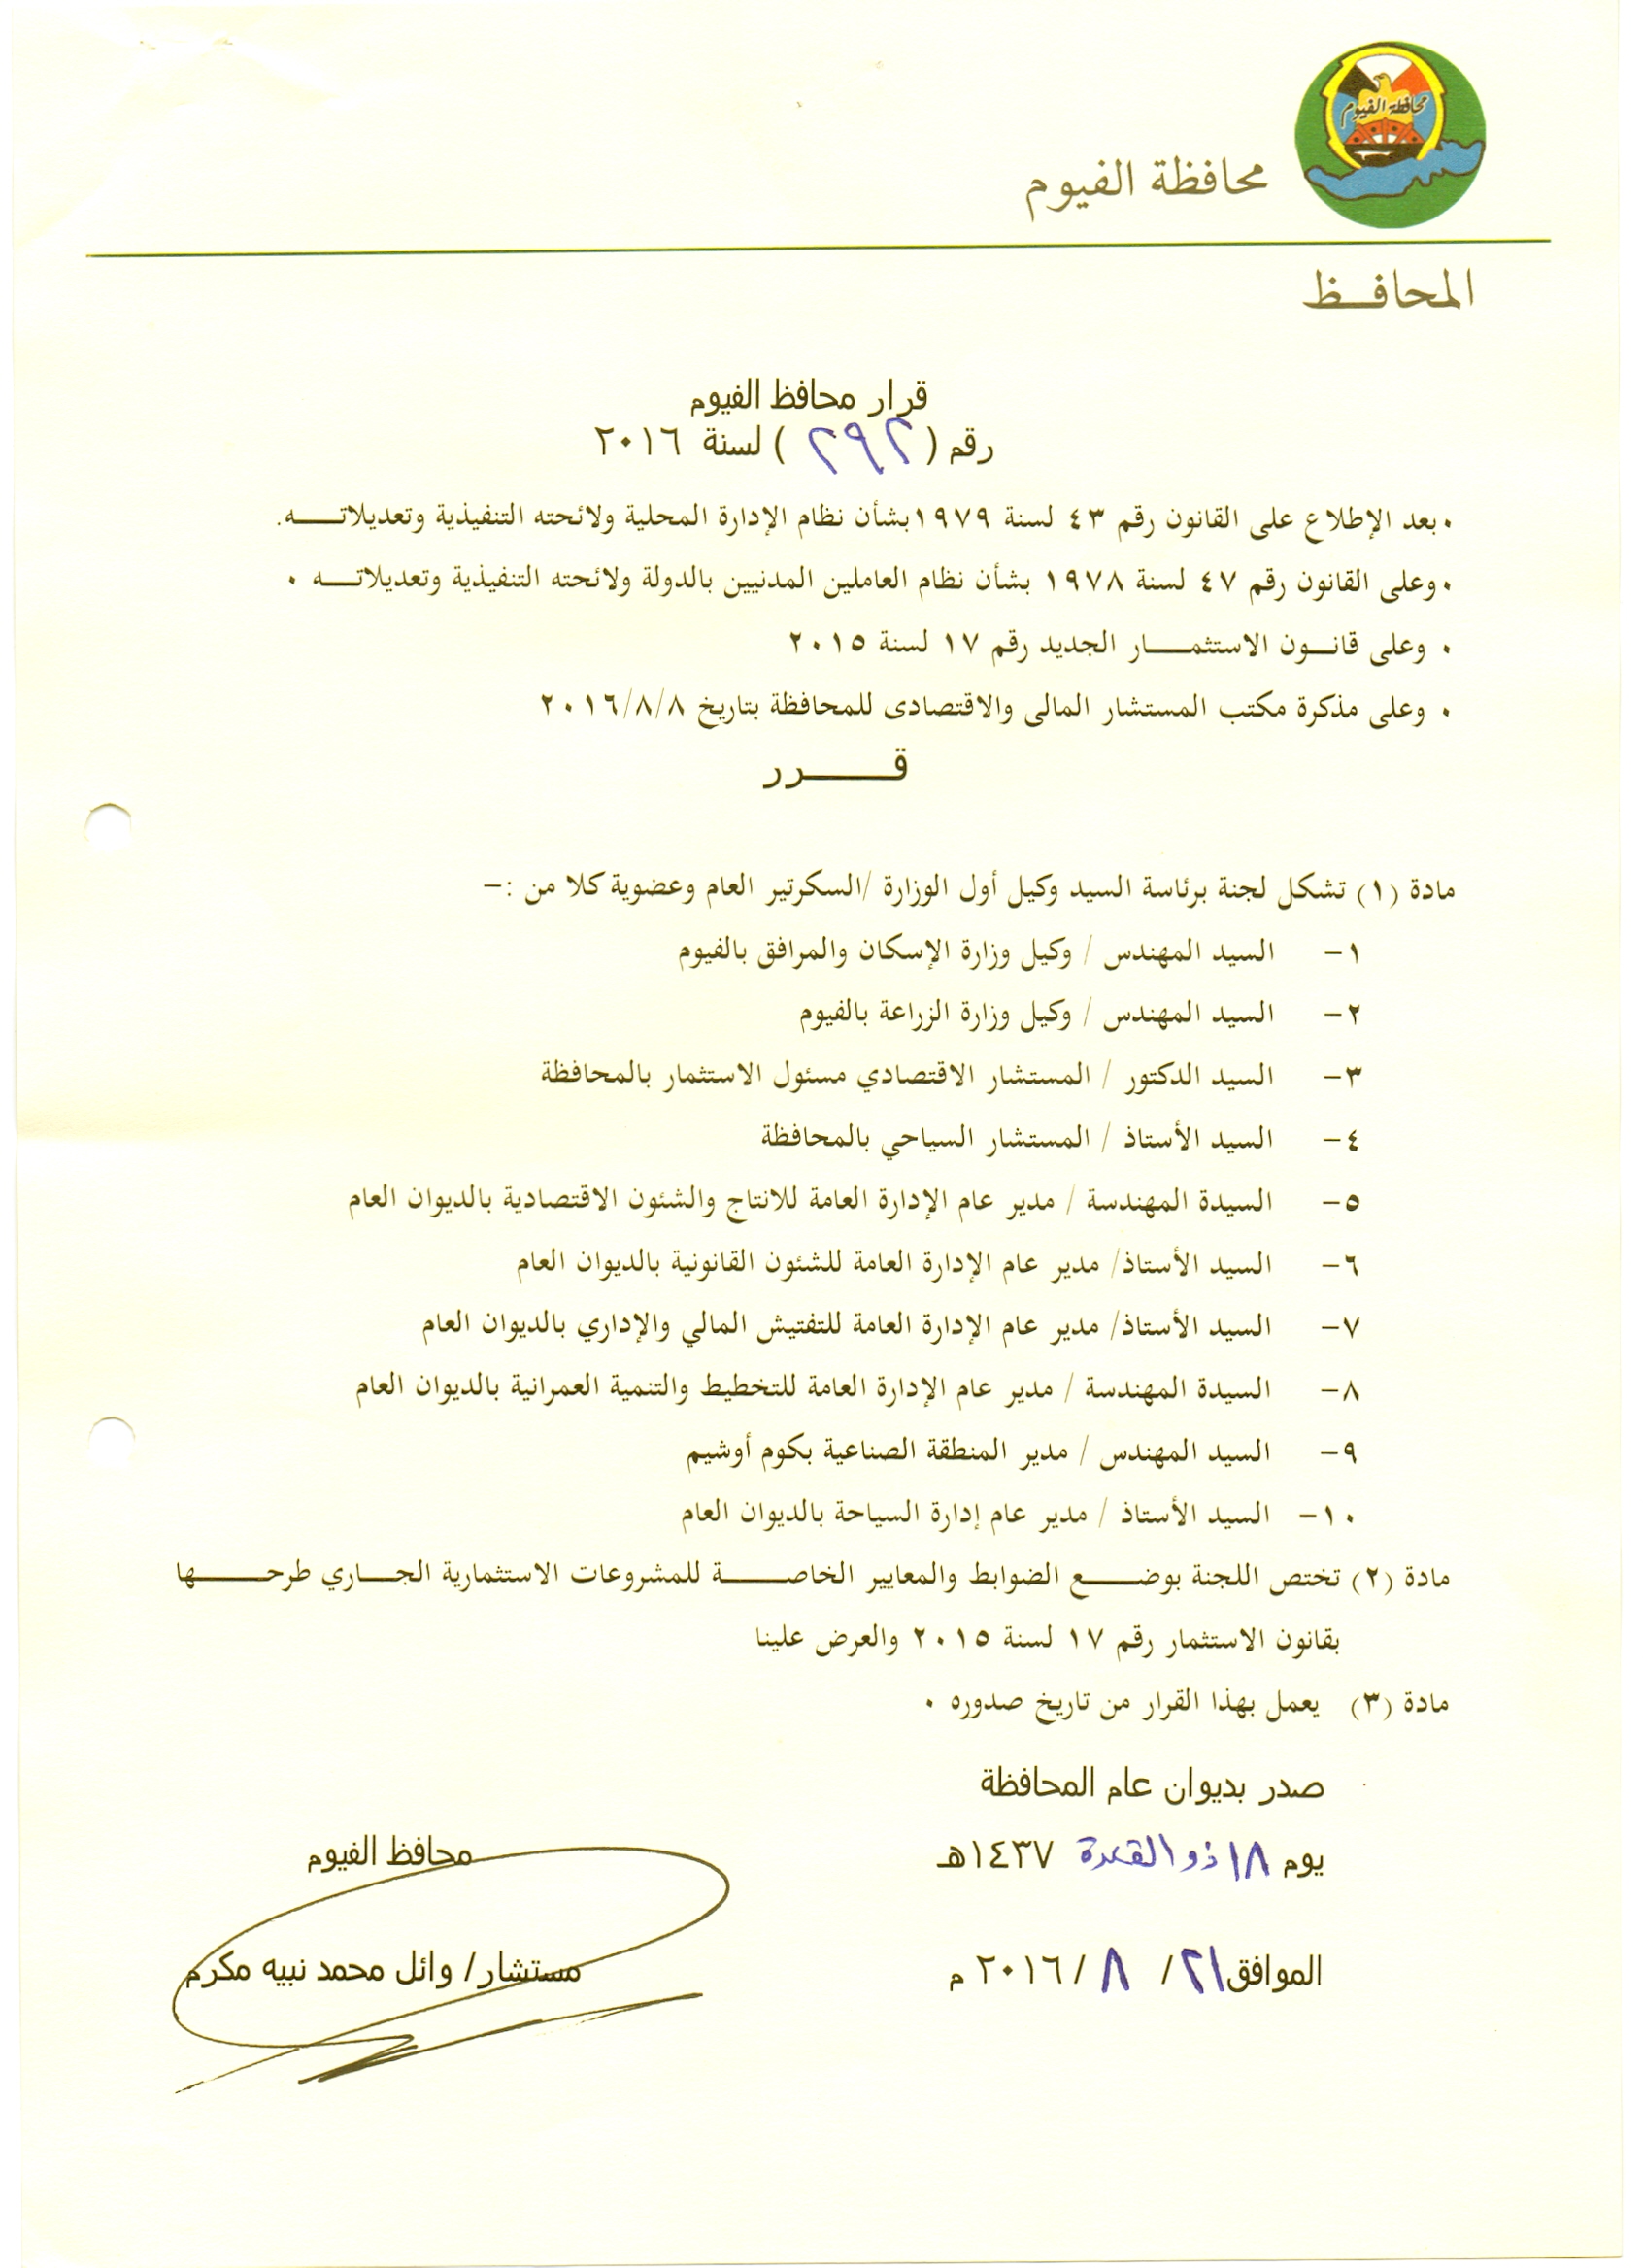 محافظة الفيوم
محافظة الفيوم
المحافظ
قرار محافظ الفيوم
رقم ( ٢٩٢ ) لسنة ٢٠١٦
• بعد الإطلاع على القانون رقم ٤٣ لسنة ١٩٧٩ بشأن نظام الإدارة المحلية ولائحته التنفيذية وتعديلاته.
• وعلى القانون رقم ٤٧ لسنة ١٩٧٨ بشأن نظام العاملين المدنيين بالدولة ولائحته التنفيذية وتعديلاته •
• وعلى قانون الاستثمار الجديد رقم ١٧ لسنة ٢٠١٥
• وعلى مذكرة مكتب المستشار المالى والاقتصادى للمحافظة بتاريخ ٢٠١٦/٨/٨
قرر
مادة (١) تشكل لجنة برئاسة السيد وكيل أول الوزارة /السكرتير العام وعضوية كلا من :-
١- السيد المهندس / وكيل وزارة الإسكان والمرافق بالفيوم
٢- السيد المهندس / وكيل وزارة الزراعة بالفيوم
٣- السيد الدكتور / المستشار الاقتصادي مسئول الاستثمار بالمحافظة
٤- السيد الأستاذ / المستشار السياحي بالمحافظة
٥- السيدة المهندسة / مدير عام الإدارة العامة للانتاج والشئون الاقتصادية بالديوان العام
٦- السيد الأستاذ/ مدير عام الإدارة العامة للشئون القانونية بالديوان العام
٧- السيد الأستاذ/ مدير عام الإدارة العامة للتفتيش المالي والإداري بالديوان العام
٨- السيدة المهندسة / مدير عام الإدارة العامة للتخطيط والتنمية العمرانية بالديوان العام
٩- السيد المهندس / مدير المنطقة الصناعية بكوم أوشيم
١٠- السيد الأستاذ / مدير عام إدارة السياحة بالديوان العام
مادة (٢) تختص اللجنة بوضع الضوابط والمعايير الخاصة للمشروعات الاستثمارية الجاري طرحها
بقانون الاستثمار رقم ١٧ لسنة ٢٠١٥ والعرض علينا
مادة (٣) يعمل بهذا القرار من تاريخ صدوره •
صدر بديوان عام المحافظة
يوم ١٨ ذو القعدة ١٤٣٧هـ
محافظ الفيوم
الموافق ٢١ / ٨ / ٢٠١٦ م
مستشار/ وائل محمد نبيه مكرم